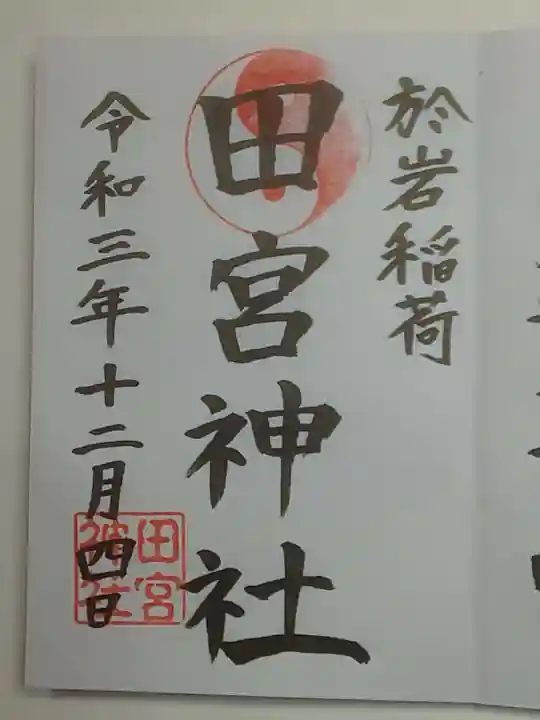 於岩稲荷
田宮神社
令和三年十二月四日
田宮
神社